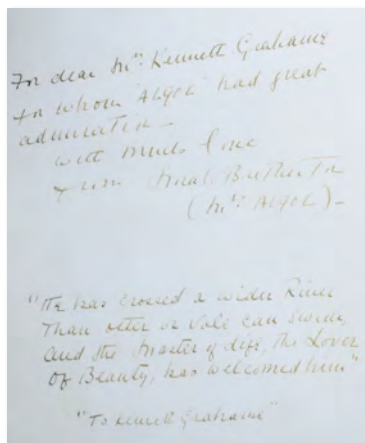 For dear Mrs. Kenneth Grahame
for whom "ALGOL" had great
admiration —
with much love
from Brotherton
(Mrs. ALGOL) —
"He has crossed a wider River
Than otter or vole can swim,
and the Master of life, the Lover
of Beauty, has welcomed him"
"To Kenneth Grahame"